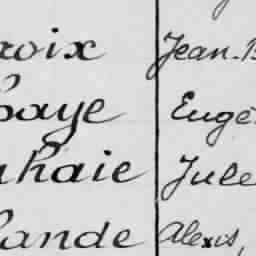 roix Jean-B
baye Eugè
uhaie Jule
lande Alexis,